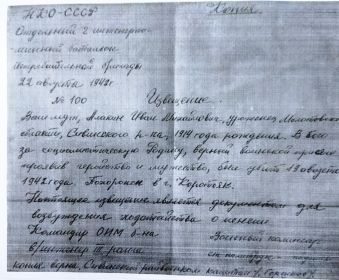 НКО-СССР Копия
Отдельный 2 инженерно-
минный батальон
Истребительной бригады
22 августы 1942г
№ 100 Извещение.
Ваш муж, Иван Михайлович, уроженец Молотовской
области, Сивинского р-на, 1914 года рождения. В бою
за социалистическую Родину, верный воинской присяге,
проявив геройство и мужество, был убит 19 августа
1942 года. Похоронен в г. Коротояк.
Настоящее извещение является документом для
возбуждения ходатайства о пенсии
Командир ОИМ б-на Военный комиссар
в/инженер ранга
копия верна, Сивинский райвоенком капитан